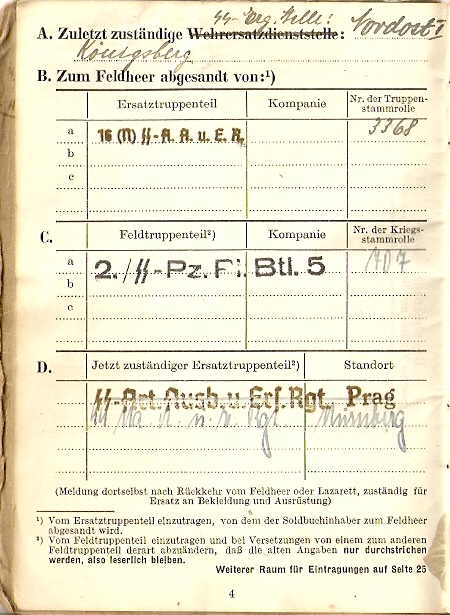 ᛋᛋ-Erg. Stelle:
A. Zuletzt zuständige Wehrersatzdienststelle: Nordost I
Königsberg
B. Zum Feldheer abgesandt von:¹)
Ersatztruppenteil Kompanie Nr. der Truppen-
stammrolle
a 16 (N) ᛋᛋ-A. A. u. E. R. 3368
b
c
C. Feldtruppenteil²) Kompanie Nr. der Kriegs-
stammrolle
a 2./ᛋᛋ-Pz. Pi. Btl. 5 707
b
c
D. Jetzt zuständiger Ersatztruppenteil²) Standort
ᛋᛋ-Art. Ausb. u. Ers. Rgt. Prag
ᛋᛋ Na A. u. E. Rgt Nürnberg
(Meldung dortselbst nach Rückkehr vom Feldheer oder Lazarett, zuständig für
Ersatz an Bekleidung und Ausrüstung)
¹) Vom Ersatztruppenteil einzutragen, von dem der Soldbuchinhaber zum Feldheer
abgesandt wird.
²) Vom Feldtruppenteil einzutragen und bei Versetzungen von einem zum anderen
Feldtruppenteil derart abzuändern, daß die alten Angaben nur durchstrichen
werden, also leserlich bleiben.
Weiterer Raum für Eintragungen auf Seite 25
4